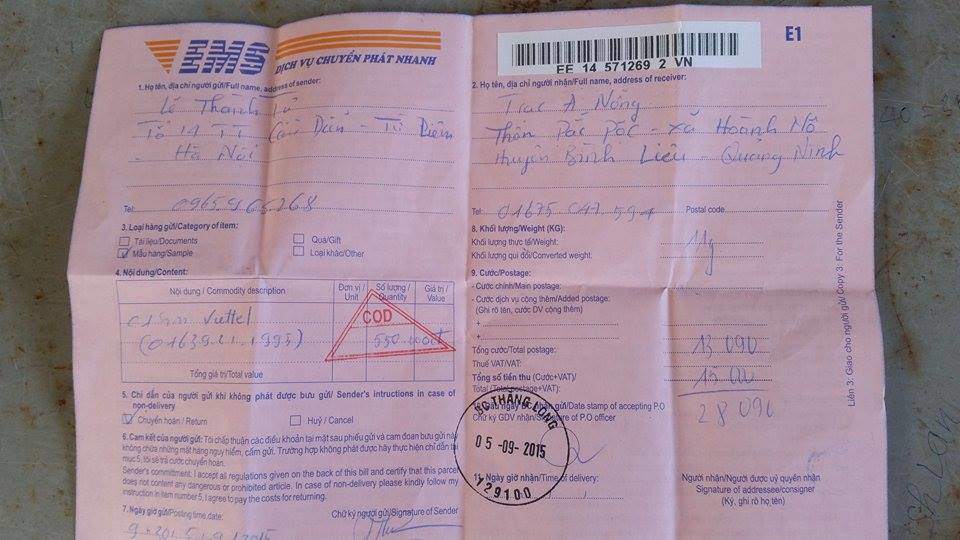 EMS
DỊCH VỤ CHUYỂN PHÁT NHANH
1. Họ tên, địa chỉ người gửi/Full name, address of sender:
Lê Thành Tử
Tổ 14 TT Cầu Diễn - Từ Liêm
- Hà Nội
Tel:
3. Loại hàng gửi/Category of item:
Tài liệu/Documents
Quà/Gift
Mẫu hàng/Sample
Loại khác/Other
4. Nội dung/Content:
Nội dung / Commodity description
Đơn vị / Unit
Số lượng / Quantity
Giá trị / Value
Viettel
COD
Tổng giá trị/Total value
5. Chỉ dẫn của người gửi khi không phát được bưu gửi/ Sender's intructions in case of
non-delivery
Chuyển hoàn / Return
Huỷ / Cancel
6. Cam kết của người gửi: Tôi chấp thuận các điều khoản tại mặt sau phiếu gửi và cam đoan bưu gửi này
không chứa những mặt hàng nguy hiểm, cấm gửi. Trường hợp không phát được hãy thực hiện chỉ dẫn tại
mục 5, tôi sẽ trả cước chuyển hoàn.
Sender's commitment: I accept all regulations given on the back of this bill and certify that this parcel
does not contain any dangerous or prohibited article. In case of non-delivery please kindly follow my
instruction in item number 5, I agree to pay the costs for returning.
7. Ngày giờ gửi/Posting time, date:
Chữ ký người gửi/Signature of Sender
E1
EE 14 571269 2 VN
2. Họ tên, địa chỉ người nhận/Full name, address of receiver:
Trạc A Nồng
Thôn Pắc Pộc - xã Hoành Mô
Huyện Bình Liêu - Quảng Ninh
Tel: 01675 047 594
Postal code
8. Khối lượng/Weight (KG):
Khối lượng thực tế/Weight: 11g
Khối lượng qui đổi/Converted weight:
9. Cước/Postage:
- Cước chính/Main postage:
- Cước dịch vụ cộng thêm/Added postage:
(Ghi rõ tên, cước DV cộng thêm)
+
+
Tổng cước/Total postage: 13 090
Thuế VAT/VAT:
Tổng số tiền thu (Cước+VAT)/ 15 000
Total (Total postage+VAT):
28 090
nhận/Date stamp of accepting P.O
Chữ ký GDV nhận/Signature of P.O officer
BC THĂNG LONG
05-09-2015
129100
11. Ngày giờ nhận/Time of delivery:
Người nhận/Người được uỷ quyền nhận
Signature of addressee/consigner
(Ký, ghi rõ họ tên)
Liên 3: Giao cho người gửi/ Copy 3: For the Sender